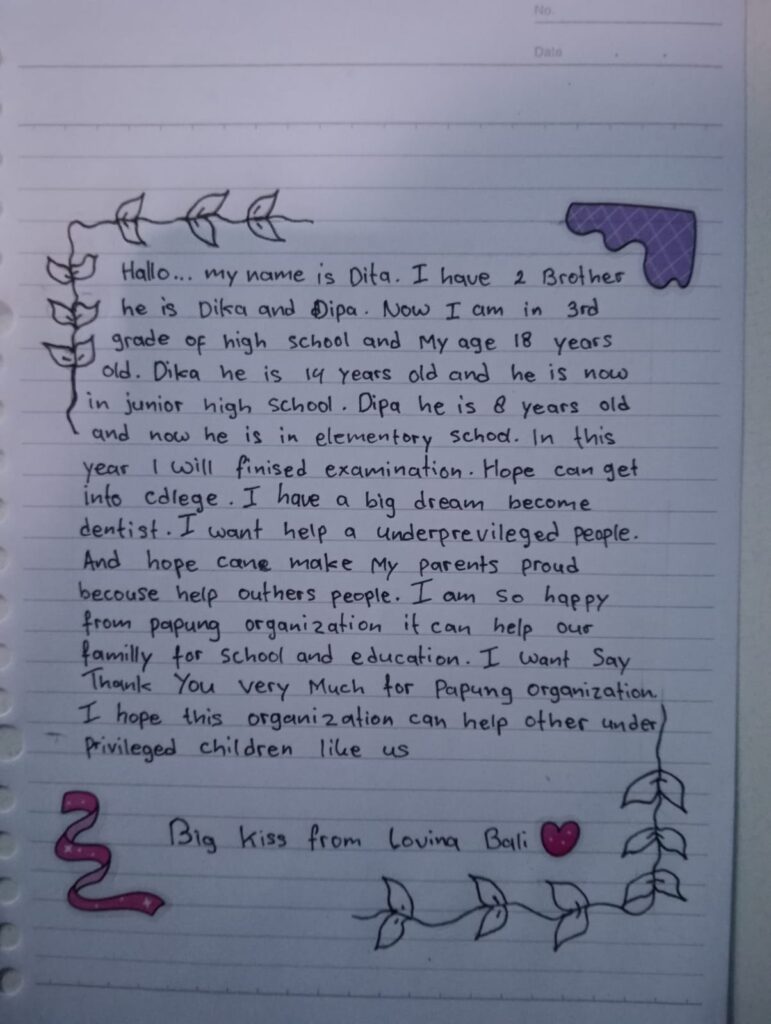 No.
Date
Hallo... my name is Dita. I have 2 Brother
he is Dika and Dipa. Now I am in 3rd
grade of high school and My age 18 years
old. Dika he is 14 years old and he is now
in junior high school. Dipa he is 8 years old
and now he is in elementory school. In this
year I will finised examination. Hope can get
into cdlege. I have a big dream become
dentist. I want help a underprevileged people.
And hope cane make My parents proud
becouse help outhers people. I am so happy
from papung organization it can help our
familly for school and education. I want Say
Thank You very Much for Papung organization.
I hope this organization can help other under
privileged children like us
Big Kiss from Lovina Bali